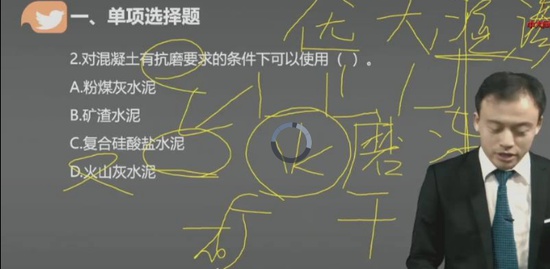 一、单项选择题
2.对混凝土有抗磨要求的条件下可以使用（ ）。
A.粉煤灰水泥
B.矿渣水泥
C.复合硅酸盐水泥
D.火山灰水泥
优大湿
磨
干